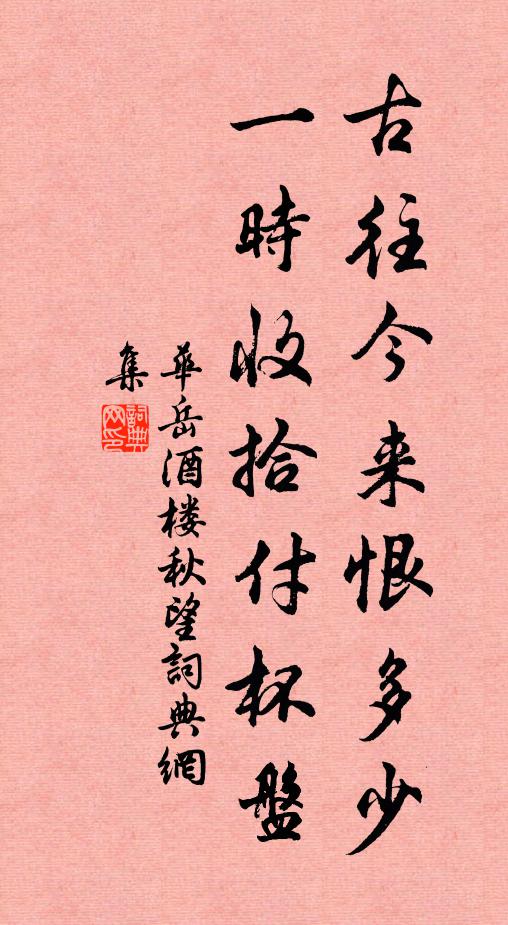 古往今来恨多少
一時收拾付杯盤
華岳酒楼秋望詞典網
集
詞典网印